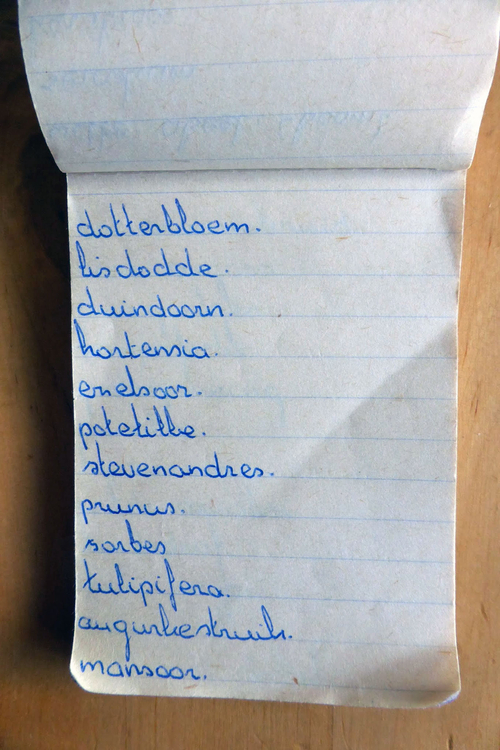 dotterbloem.
lisdodde.
duindoorn.
hortensia.
enelsoor.
potetilla.
stevenandres.
prunus.
sorbes
tulipifera.
augurkestruik.
mansoor.